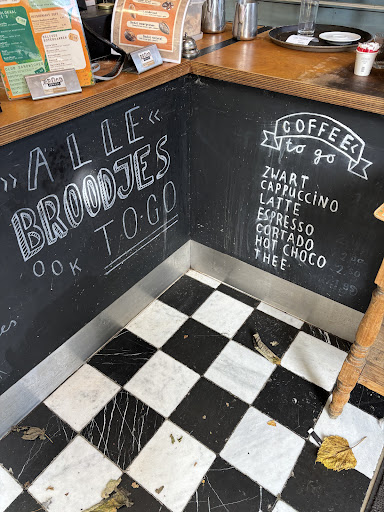 » ALLE «
BROODJES
OOK TO GO
COFFEE
to go
ZWART
CAPPUCCINO
LATTE
ESPRESSO
CORTADO
HOT CHOCO
THEE